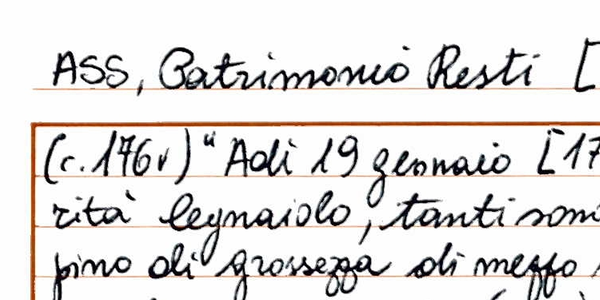 ASS, Patrimonio Resti [
(c. 176v) "Adì 19 gennaio [17
rità legnaiolo, tanti sono
pino di grossezza di mezzo